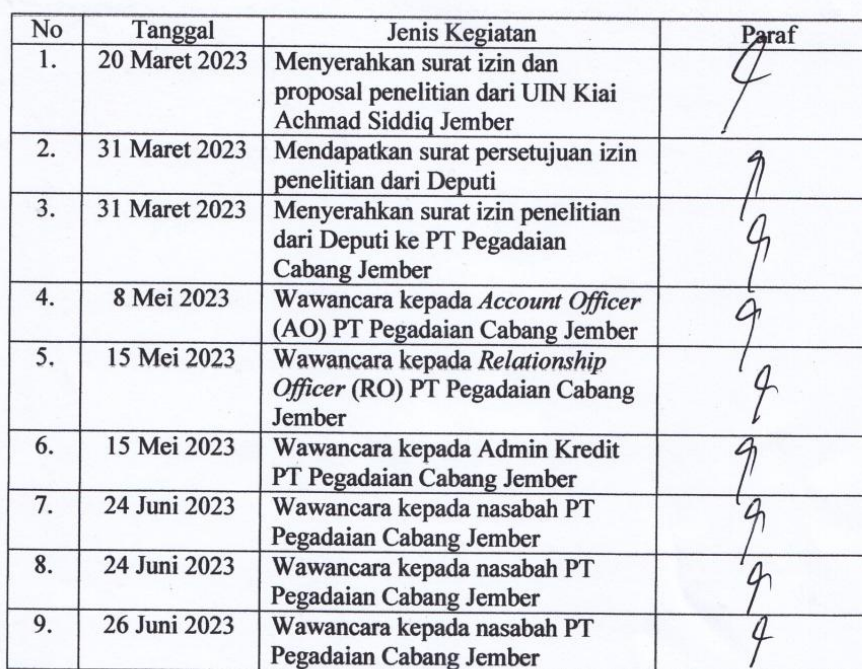 No Tanggal Jenis Kegiatan Paraf
1. 20 Maret 2023 Menyerahkan surat izin dan
proposal penelitian dari UIN Kiai
Achmad Siddiq Jember
2. 31 Maret 2023 Mendapatkan surat persetujuan izin
penelitian dari Deputi
3. 31 Maret 2023 Menyerahkan surat izin penelitian
dari Deputi ke PT Pegadaian
Cabang Jember
4. 8 Mei 2023 Wawancara kepada Account Officer
(AO) PT Pegadaian Cabang Jember
5. 15 Mei 2023 Wawancara kepada Relationship
Officer (RO) PT Pegadaian Cabang
Jember
6. 15 Mei 2023 Wawancara kepada Admin Kredit
PT Pegadaian Cabang Jember
7. 24 Juni 2023 Wawancara kepada nasabah PT
Pegadaian Cabang Jember
8. 24 Juni 2023 Wawancara kepada nasabah PT
Pegadaian Cabang Jember
9. 26 Juni 2023 Wawancara kepada nasabah PT
Pegadaian Cabang Jember